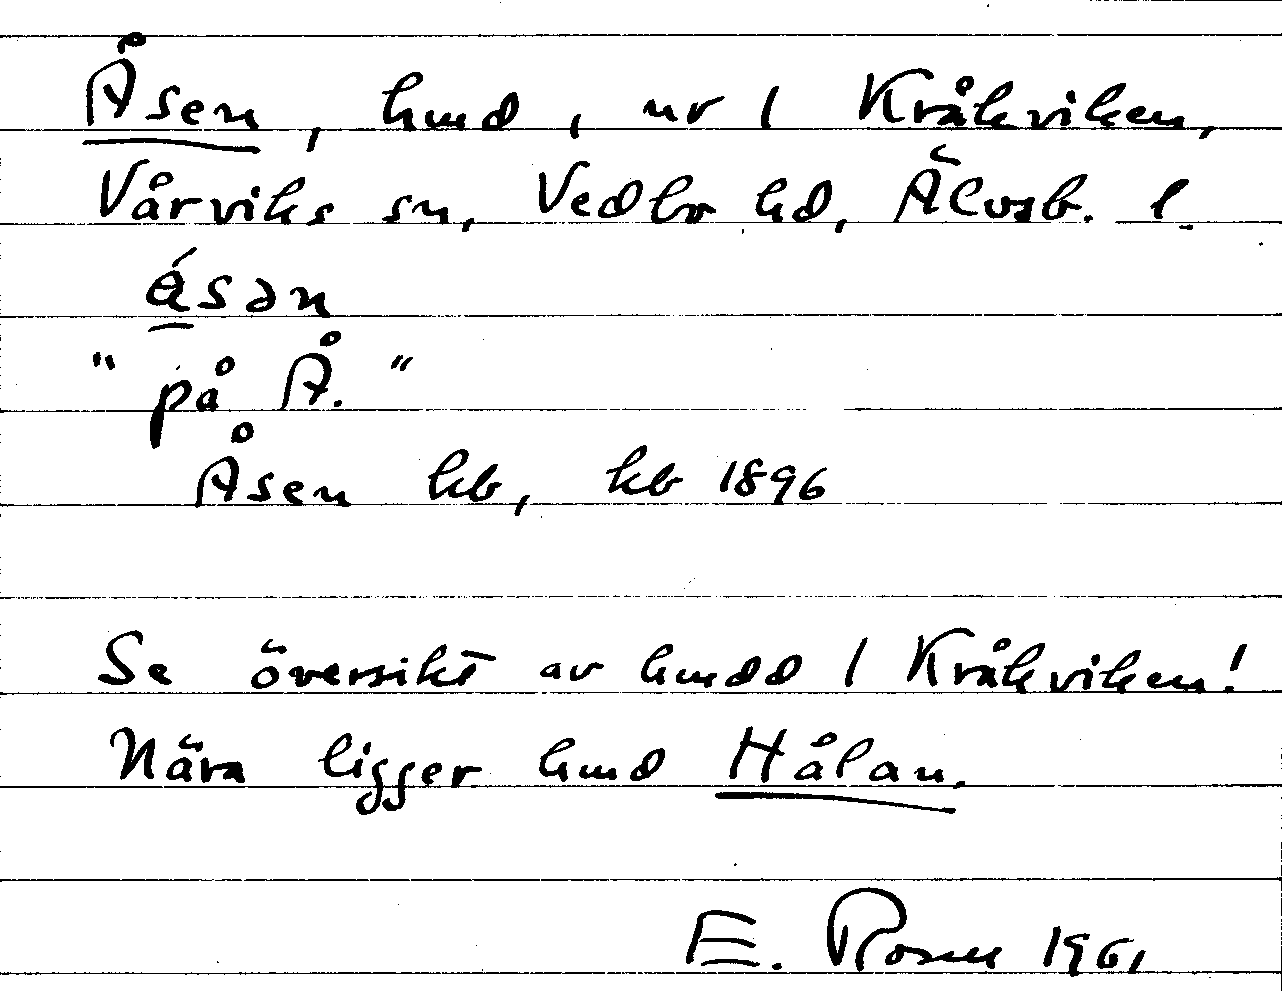 Åsen, hmd, nr 1 Kråkviken,
Vårviks sn, Vedbo hd, Älvsb. l.
åsən
"på Å."
Åsen hb, kb 1896
Se översikt av hmdd 1 Kråkviken!
Nära ligger hmd Hålan.
E. Rosell 1961